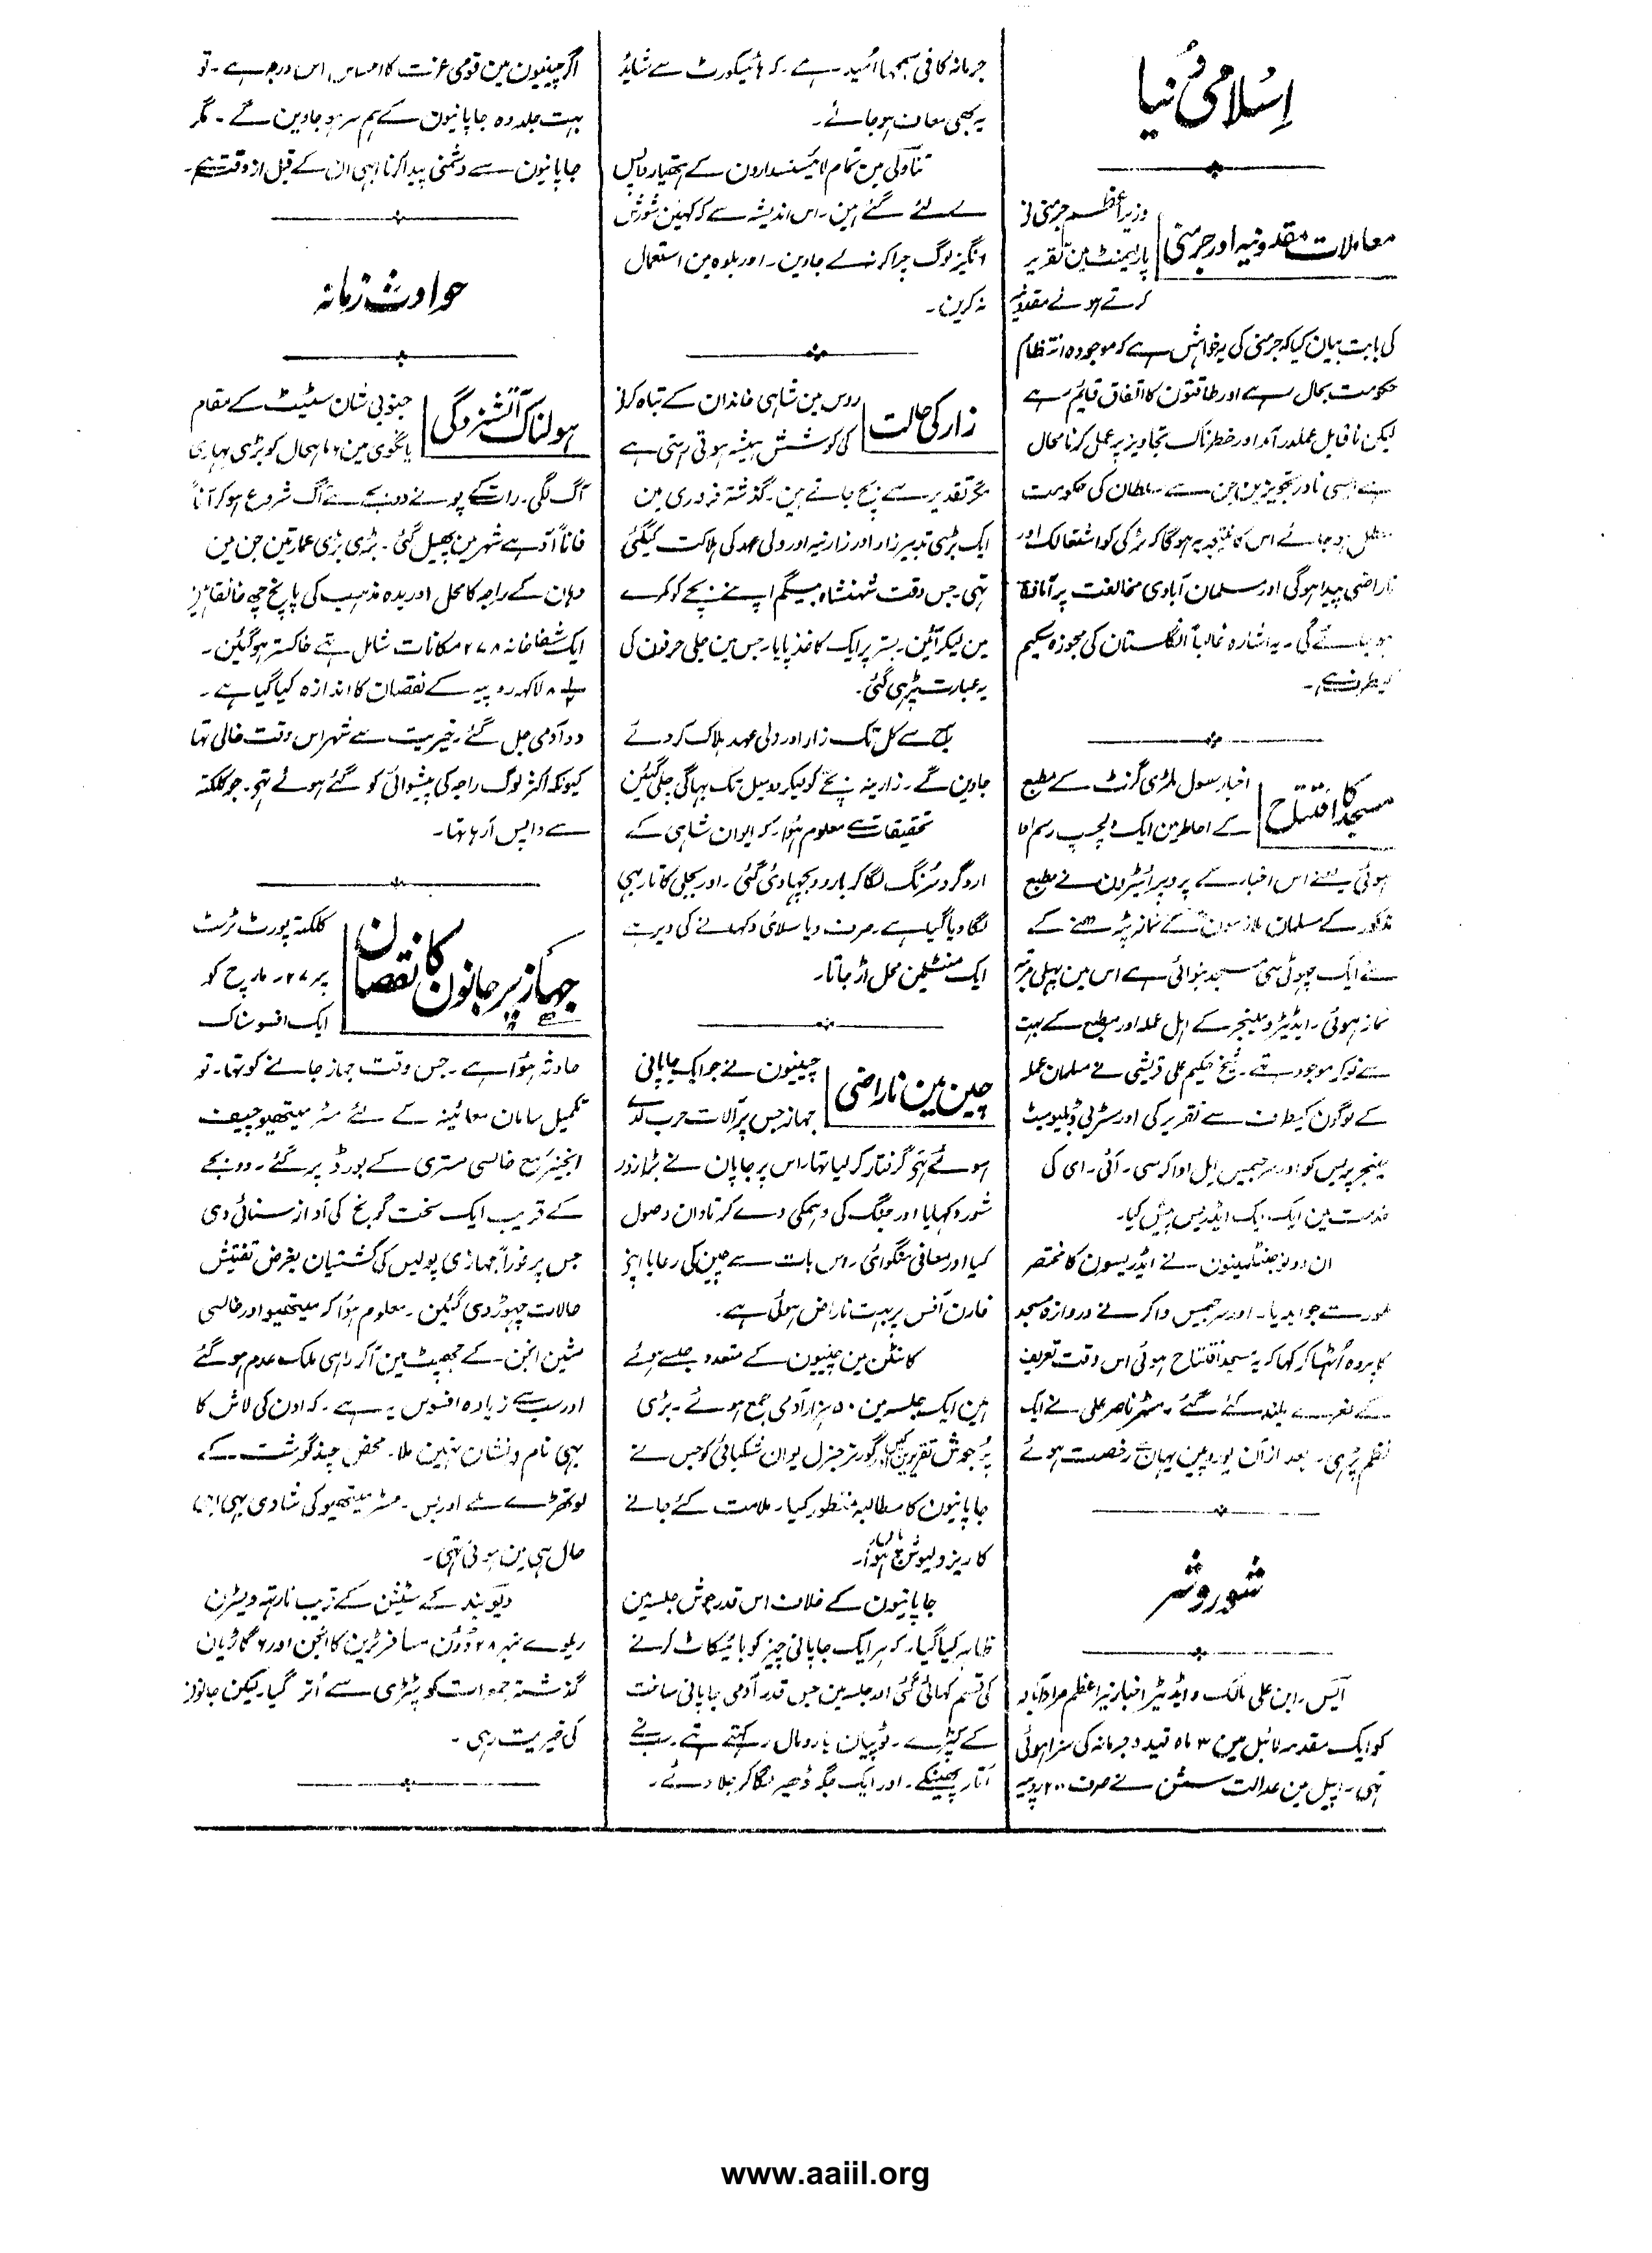 اِسلامی دُنیا
معاملات مقدونیہ اور جرمنی
وزیر اعظم جرمنی نے
پارلیمنٹ مین تقریر
کرتے ہوئے مقدونیہ
کی بابت بیان کیا کہ جرمنی کی یہ خواہش ہے کہ موجودہ انتظام
حکومت بحال رہے اور طاقتون کا اتفاق قایم رہے
لیکن ناقابل عملدرآمد اور خطرناک تجاویز پر عمل کرنا محال
ہے ایسی نادر تجویزین جن سے سلطان کی حکومت
معطل ہو جائے اس کا نتیجہ یہ ہوگا کہ ٹرکی کو اشتعالک اور
ناراضی پیدا ہوگی اور مسلمان آبادی مخالفت پر آمادہ
ہو جائے گی۔ یہ اشارہ غالباً انگلستان کی مجوزہ سکیم
کیطرف ہے۔
مسجد کا افتتاح
اخبار سول ملٹری گزٹ کے مطبع
کے احاطہ مین ایک دلچسپ رسم ادا
ہوئی یعنے اس اخبار کے پروپرائیٹرون نے مطبع
مذکور کے مسلمان ملازمون کے نماز پڑھنے کے
لئے ایک چھوٹی سی مسجد بنوائی ہے اس مین پہلی مرتبہ
نماز ہوئی۔ ایڈیٹر و مینجر کے اہل عملہ اور مطبع کے بہت
سے نوکر موجود تھے۔ شیخ حکیم علی قریشی نے مسلمان عملہ
کے لوگون کیطرف سے تقریر کی اور مسٹر بی ڈبلیو سمٹ
مینجر پریس کو اور سر جیمس ایل واکر سی۔ آئی۔ ای کی
خدمت مین ایک ایک ایڈریس پیش کیا۔
ان دونو جنٹلمینون نے ایڈریسون کا مختصر
طور سے جواب دیا۔ اور سر جیمس واکر نے دروازہ مسجد
کا پردہ اُٹھا کر کہا کہ یہ مسجد افتتاح ہوئی اس وقت تعریف
کے نعرے بلند کئے گئے۔ مسٹر ناصر علی نے ایک
نظم پڑہی۔ بعد ازان یوروپین یہان سے رخصت ہوئے
شور و شر
ایس۔ ابن علی مالک و ایڈیٹر اخبار نیر اعظم مرادآباد
کو ایک مقدمہ لائبل مین ۳ ماہ قید و جرمانہ کی سزا ہوئی
تہی۔ اپیل مین عدالت سشن نے صرف ۲۰۰ روپیہ
جرمانہ کافی سمجہا اُمید ہے۔ کہ ہائیکورٹ سے شائد
یہ بھی معاف ہو جائے۔
مین تمام لائیسنسدارون کے ہتھیار واپس
لے لئے گئے ہین۔ اس اندیشہ سے کہ کہین شورش
انگیز لوگ چرا کر نہ لے جاوین۔ اور بلوہ مین استعمال
نہ کرین۔
زار کی حالت
روس مین شاہی خاندان کے تباہ کرنے
کی کوشش ہمیشہ ہوتی رہتی ہے
مگر تقدیر سے بچ جاتے ہین۔ گذشتہ فروری مین
ایک بڑی تدبیر زار اور زارنیہ اور ولی عہد کی ہلاکت کیگئی
تہی۔ جس وقت شہنشاہ بیگم اپنے بچے کو کمرے
مین لیکر آئین۔ بستر پر ایک کاغذ پایا۔ جس مین جلی حرفون کی
یہ عبارت پڑہی گئی۔
صبح سے کل تک زار اور ولی عہد ہلاک کر دئے
جاوین گے۔ زارینہ بچے کو لیکر دو میل تک بہاگی چلی گئین
تحقیقات سے معلوم ہُوا۔ کہ ایوان شاہی کے
اردگرد سُرنگ لگا کر بارود بچہا دی گئی۔ اور بجلی کا تار بہی
لگا دیا گیا ہے۔ صرف دیا سلائی دکہانے کی دیر ہے
ایک منٹ مین محل اُڑ جاتا۔
چین مین ناراضی
چینیون نے جو ایک جاپانی
جہاز جس پر آلات حرب لدے
ہوئے تہے گرفتار کر لیا تہا۔ اس پر جاپان نے بڑا زور
شور دکہایا اور جنگ کی دہمکی دے کر تاوان وصول
کیا اور معافی منگوائی۔ اس بات سے چین کی رعایا اپنے
فارن آفس پر بہت ناراض ہوئی ہے۔
کانٹن مین چینیون کے متعدد جلسے ہوئے
ہین ایک جلسہ مین ۵۰ ہزار آدمی جمع ہوئے۔ بڑی
پُرجوش تقریرین کین اور گورنر جنرل یوان شکبائی کو جس نے
جاپانیون کا مطالبہ منظور کیا۔ ملامت کئے جانے
کا ریزولیوشن پاس ہُوا۔
جاپانیون کے خلاف اس قدر جوش جلسہ مین
ظاہر کیا گیا۔ کہ ہر ایک جاپانی چیز کو بائیکاٹ کرنے
کی قسم کہائی گئی اور جلسہ مین جس قدر آدمی جاپانی ساخت
کے کپڑے۔ ٹوپیان یا رومال رکہتے تہے۔ سب نے
اُتار پھینکے۔ اور ایک جگہ ڈھیر لگا کر جلا دئے۔
اگر چینیون مین قومی عزت کا احساس اس درجہ ہے۔ تو
بہت جلد وہ جاپانیون کے ہم سر ہو جاوین گے۔ مگر
جاپانیون سے دشمنی پیدا کرنا ابہی ان کے قبل از وقت ہے۔
حوادث زمانہ
ہولناک آتشزدگی
جنوبی شان سٹیٹ کے مقام
یانگوی مین ۶ ماہحال کو بڑی بہاری
آگ لگی۔ رات کے پونے دو بجے سے آگ شروع ہو کر آناً
فاناً آدہے شہر مین پھیل گئی۔ بڑی بڑی عمارتین جن مین
وہان کے راجہ کا محل اور بدہ مذہب کی پانچ چھ خانقاہین
ایک شفاخانہ ۲۷۸ مکانات شامل تہے خاکستر ہو گئین۔
۸ لاکہہ روپیہ کے نقصان کا اندازہ کیا گیا ہے۔
دو آدمی جل گئے۔ خیریت سے شہر اس وقت خالی تہا
کیونکہ اکثر لوگ راجہ کی پیشوائی کو گئے ہوئے تہے۔ جو کلکتہ
سے واپس آ رہا تہا۔
جہاز پر جانون کا نقصان
کلکتہ پورٹ ٹرسٹ
پر ۲۷۔ مارچ کو
ایک افسوسناک
حادثہ ہُوا ہے۔ جس وقت جہاز جانے کو تہا۔ تو
تکمیل سامان معائینہ کے لئے مسٹر میتھیو چیف
انجنیر مع خالسی مستری کے بورڈ پر گئے۔ دو بجے
کے قریب ایک سخت گونج کی آواز سنائی دی
جس پر فوراً جہازی پولیس کی کشتیان بغرض تفتیش
حالات چہوڑ دی گئین۔ معلوم ہُوا کہ میتھیو اور خالسی
مشین انجن کے جھپیٹ مین آ کر راہی ملک عدم ہو گئے
اور سب سے زیادہ افسوس یہ ہے۔ کہ اون کی لاش کا
بہی نام و نشان نہین ملا۔ محض چند گوشت کے
لوتھڑے ملے اور بس۔ مسٹر میتھیو کی شادی بہی ابہی
حال ہی مین ہوئی تہی۔
دیوبند کے سٹیشن کے قریب نارتھ ویسٹرن
ریلوے نمبر ۲۸ ڈؤن مسافر ٹرین کا انجن اور ۶ گاڑیان
گذشتہ جمعرات کو پٹڑی سے اُتر گیا۔ لیکن جانون
کی خیریت رہی۔
www.aaiil.org